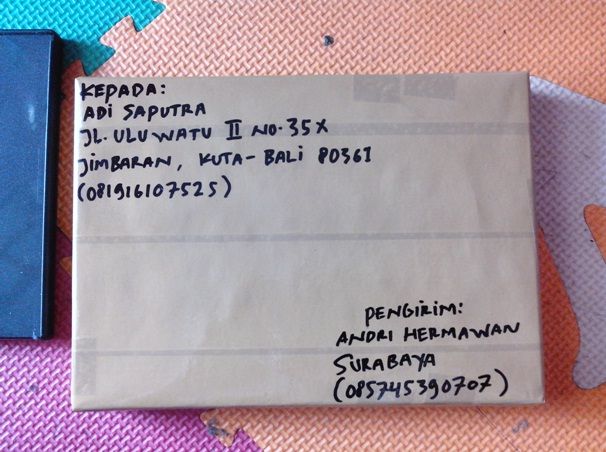 KEPADA:
ADI SAPUTRA
JL. ULUWATU II NO. 35X
JIMBARAN, KUTA - BALI 80361
(081916107525)
PENGIRIM:
ANDRI HERMAWAN
SURABAYA
(085745390707)